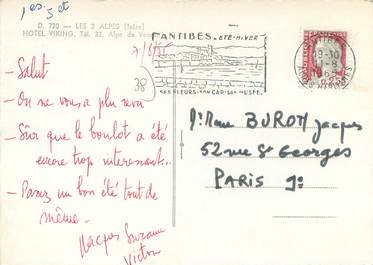 D. 720 — LES 2 ALPES (Isère)
HOTEL VIKING, Tél. 22, Alpe de
ANTIBES - ÉTÉ-HIVER
SES FLEURS - SON CAP - SON MUSÉE
38
- Salut
- On ne vous a plus revu
- Sûr que le boulot a été
encore trop intéressant..
- Passez un bon été tout de
même -
Jacques Suzanne
Victor
Mr Mme BUROT Jacques
52 rue St Georges
PARIS 9e